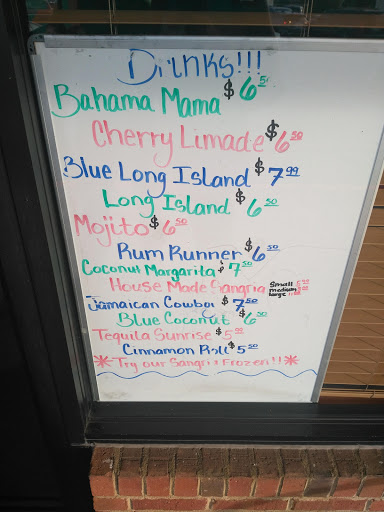 Drinks!!!
Bahama Mama $6.50
Cherry Limade $6.50
Blue Long Island $7.99
Long Island $6.50
Mojito $6.50
Rum Runner $6.50
Coconut Margarita $7.50
House Made Sangria Small
medium
large
Jamaican Cowboy $7.50
Blue Coconut $6.50
Tequila Sunrise $5.99
Cinnamon Roll $5.50
*Try our Sangria Frozen!!*